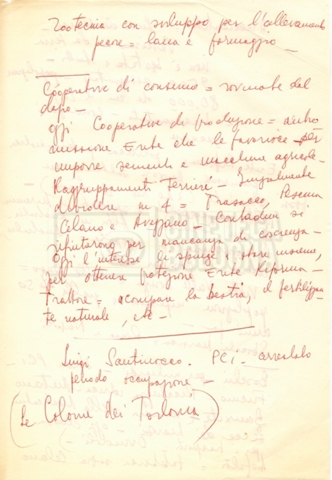 Zootecnia con sviluppo per l'allevamento
pecore = lana e formaggio —
Cooperative di consumo = formate dal
dopo —
Oggi Cooperative di produzione = autro
missione Ente che le favorisce per
imporre sementi e macchine agricole.
Raggruppamenti Terrieri = Inizialmente
dividere in 4 = Trasacco, Pescina
Celano e Avezzano — Contadini si
rifiutarono per mancanza di coscienza —
Oggi l'interesse li spinge a stare insieme,
per ottenere protezione Ente Riforma —
Trattore = scompare la bestia, il fertilizzan
te naturale, etc —
Luigi Santirocco. PCI. arrestato
periodo occupazione —
(Le Colonie dei Torlonia)